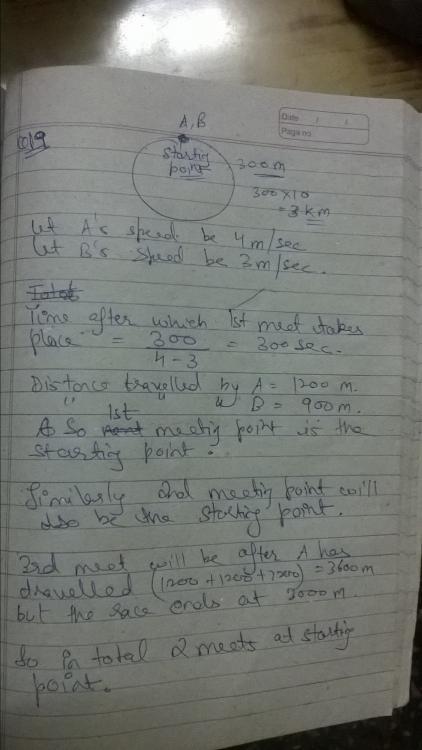 A, B
Date / /
Page no
Q19
starting
point
300m
300 x 10
= 3 km
Let A's speed be 4m/sec
Let B's speed be 3m/sec.
Total
Time after which 1st meet takes
place = 300/4-3 = 300 sec.
Distance travelled by A = 1200 m.
" " " B = 900 m.
1st
So meetig point is the
startig point.
Similerly 2nd meetig point will
also be the startig point.
3rd meet will be after A has
travelled (1200 + 1200 + 1200) = 3600m
but the race ends at 3000 m.
So in total 2 meets at startig
point.